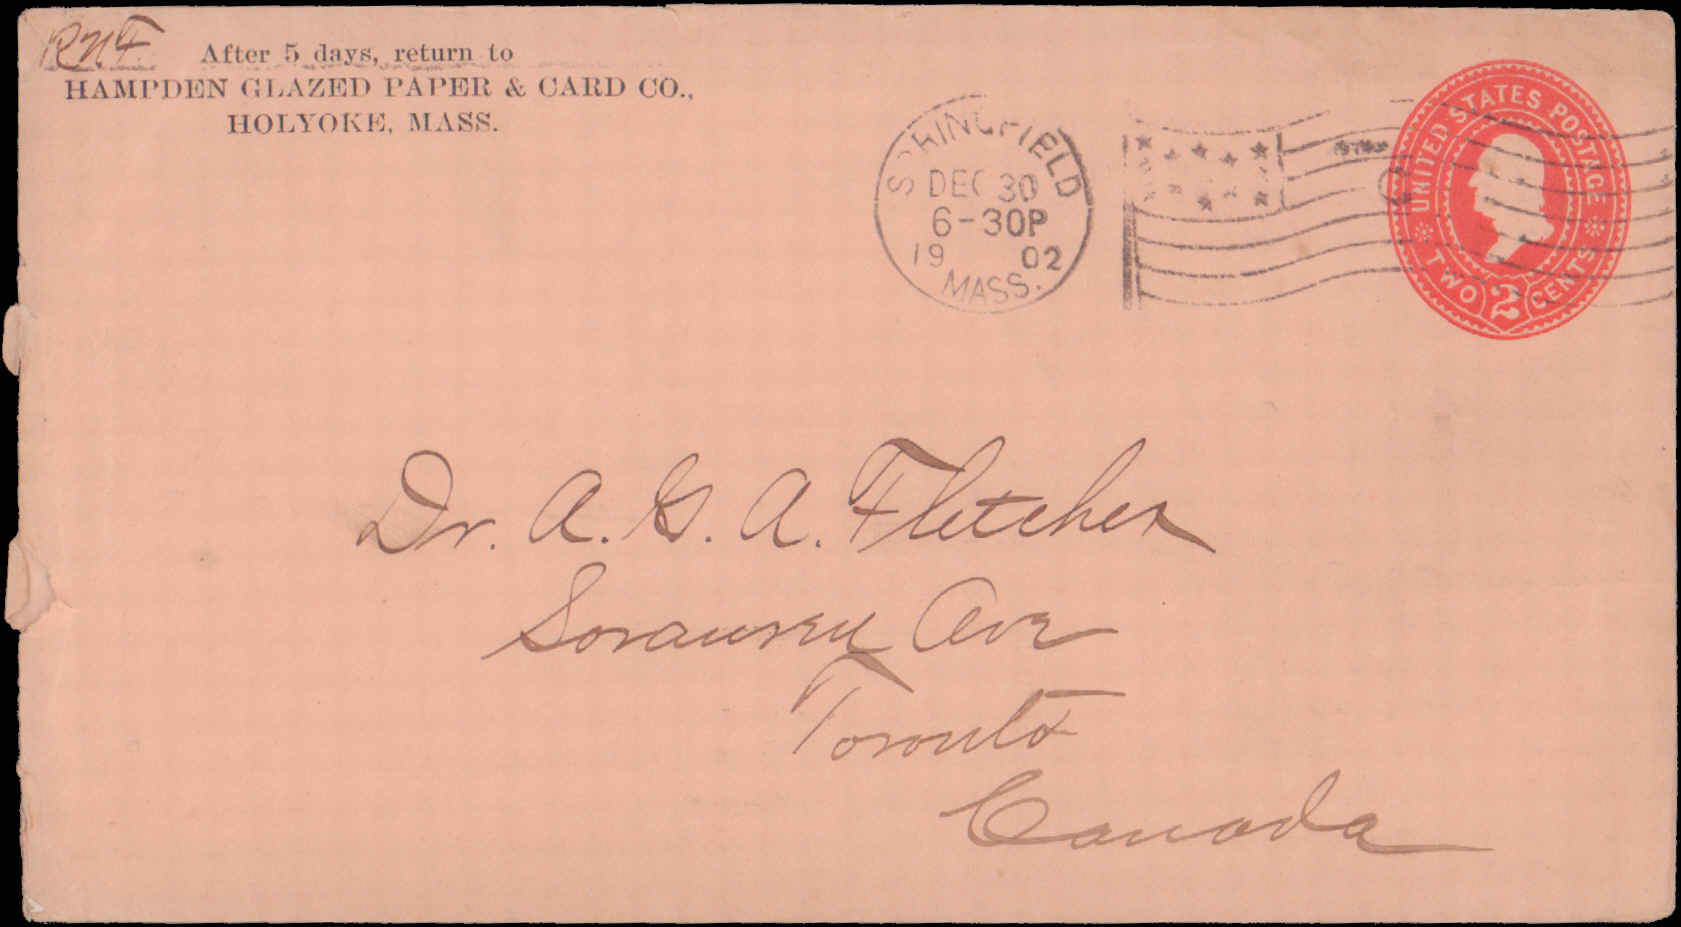 RNF. After 5 days, return to
HAMPDEN GLAZED PAPER & CARD CO.,
HOLYOKE, MASS.
SPRINGFIELD
DEC 30
6-30P
19 02
MASS.
UNITED STATES POSTAGE
TWO 2 CENTS
Dr. A. G. A. Fletcher
Sorauren Ave
Toronto
Canada